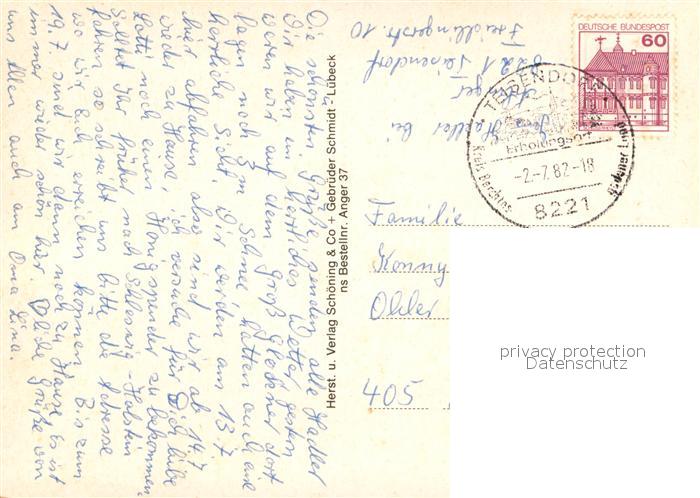 Die schönsten Grüße senden alle Hadler
Wir haben ein herrliches Wetter, gestern
waren wir auf dem Groß Glockner dort
lagen noch 3 m Schnee hatten auch eine
herrliche Sicht. Wir werden am 13.7
hier abfahren also sind wir ab 14.7
wieder zu Hause, ich versuche für Dich liebe
Lotti noch einen Honigspender zu bekommen.
Solltet Ihr früher nach Schleswig-Holstein
fahren so schreibt uns bitte die Adresse
wo wir Euch erreichen können. Bis zum
19.7 sind wir dann noch zu Hause. Es ist
immer wieder schön hier. Viele Grüße von
uns Allen auch an Oma Lina.
Herst. u. Verlag Schöning & Co + Gebrüder Schmidt - Lübeck
ns Bestellnr. Anger 37
Hadler bei
8221 Teisendorf
Freidlingerstr. 10
DEUTSCHE BUNDESPOST
60
TEISENDORF
Erholungsort
-2.-7.82-18
8221
Familie
Konny
Ohler
405
privacy protection
Datenschutz